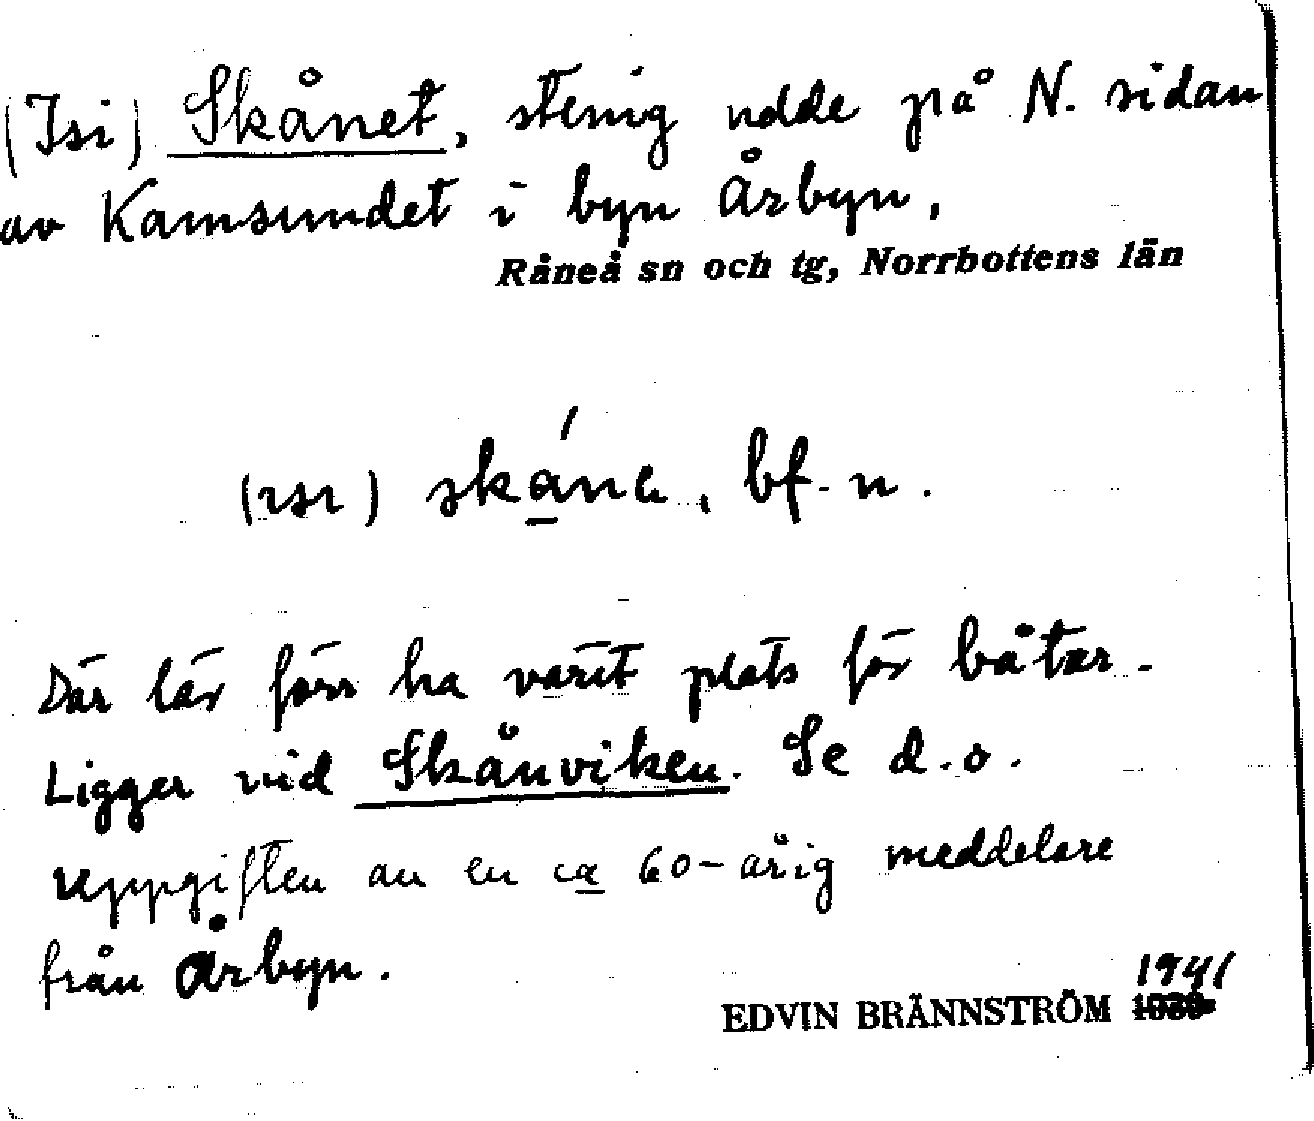 (Isi) Skånet, stenig udde på N. sidan
av Kamsundet i byn Årbyn,
Råneå sn och tg, Norrbottens län
(ısı) ská̲nɐ, bf. n.
Där lär förr ha varit plats för båtar.
Ligger vid Skånviken. Se d.o.
Uppgiften av en ca 60-årig meddelare
från Årbyn.
1941
EDVIN BRÄNNSTRÖM 1939